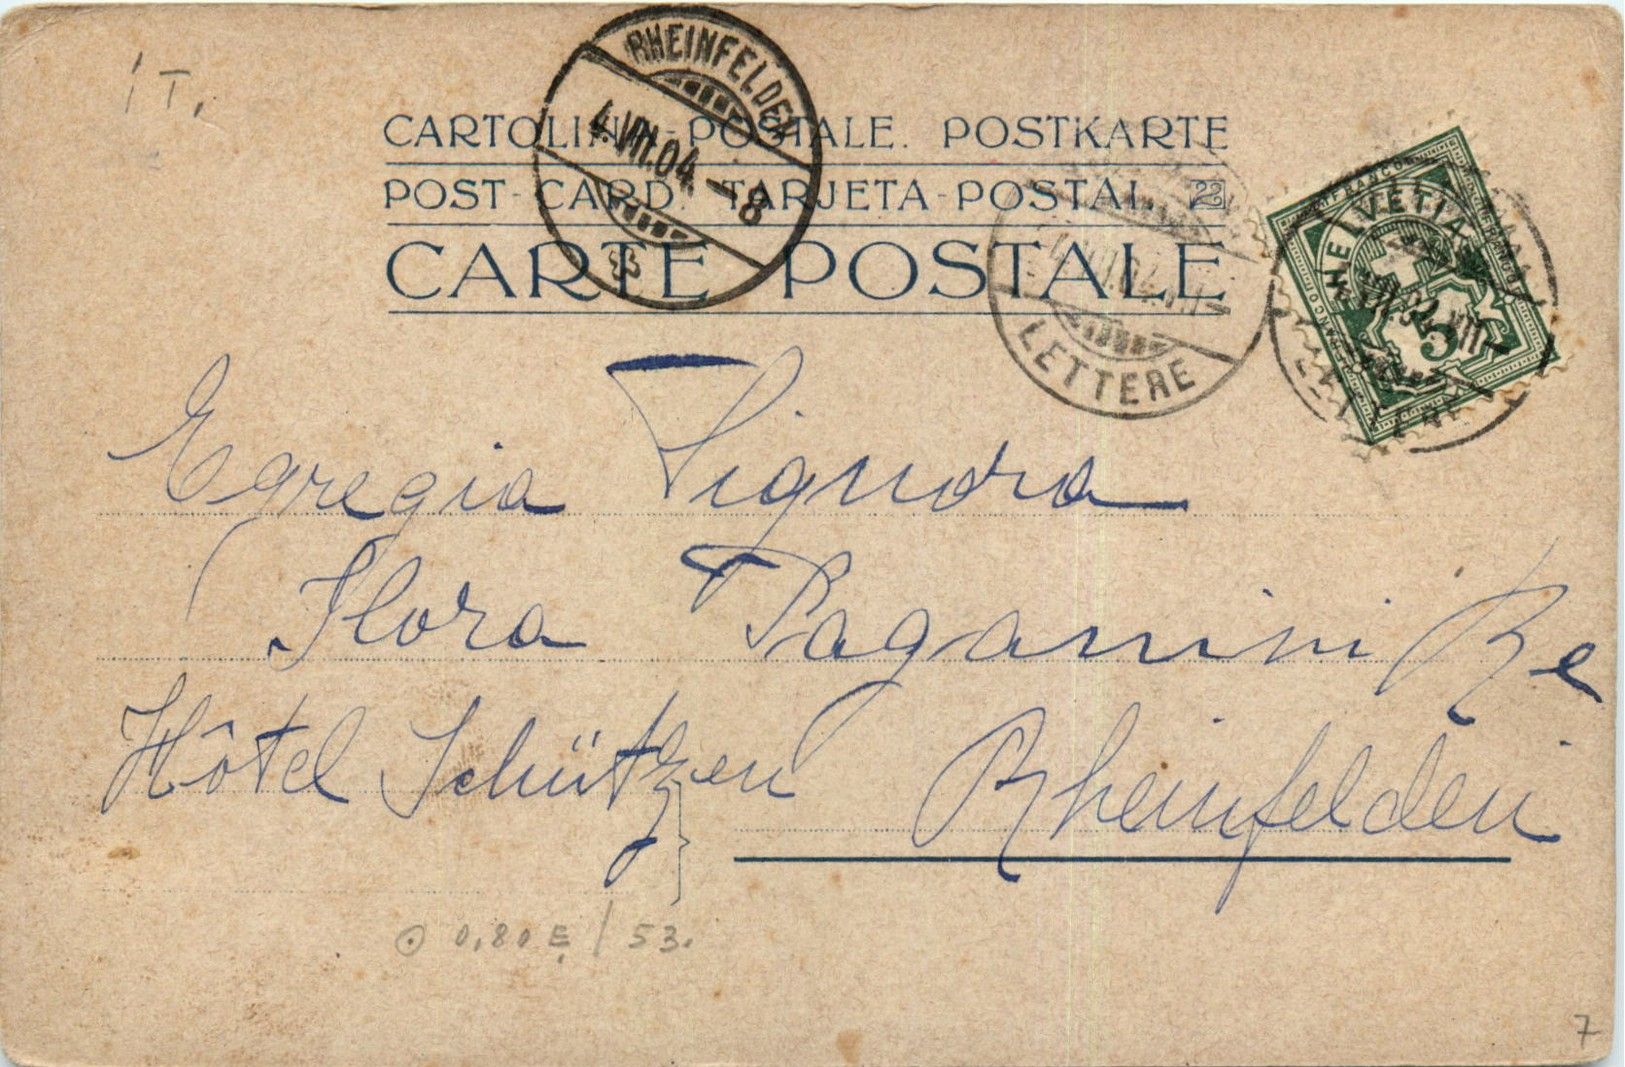 1T.
RHEINFELDEN
4.VIII.04.-8
CARTOLINA-POSTALE. POSTKARTE
POST-CARD. TARJETA-POSTAL. 22
CARTE POSTALE
LETTERE
FRANCO
HELVETIA
5
Egregia Signora
Flora Paganini Re
Hôtel Schützen Rheinfelden
0,80 E / 53.
7